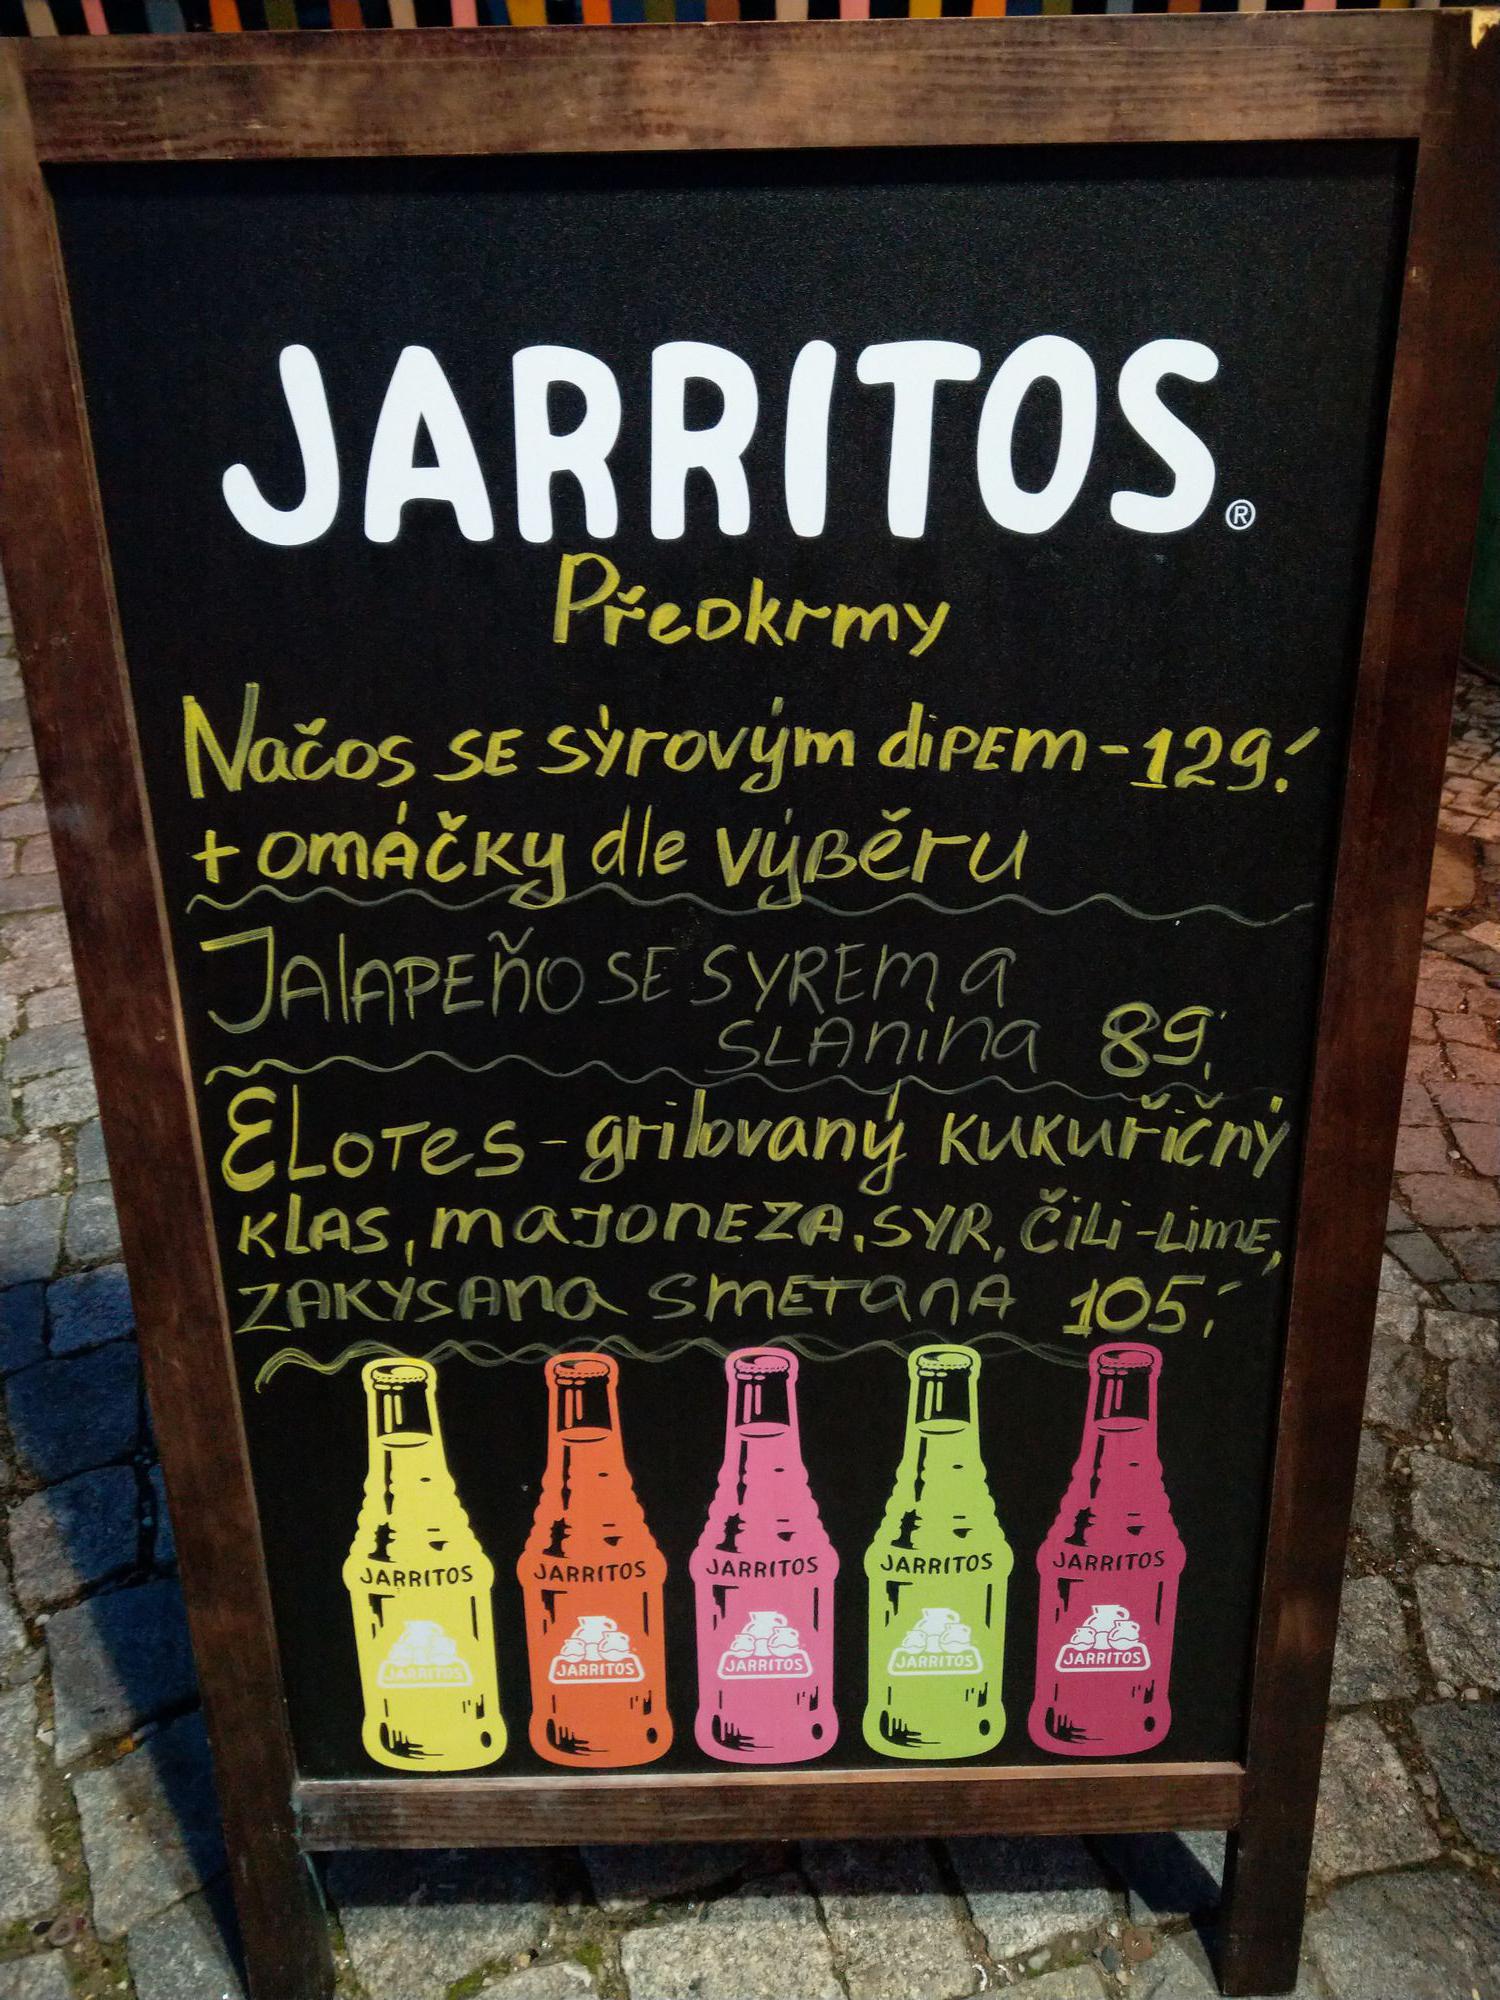 JARRITOS®
Předkrmy
Načos SE sýrovým dipem - 129.-
+ omáčky dle výběru
JALAPEŇO SE SYREM a
SLANINA 89,-
ELOTES - grilovaný kukuřičný
klas, majoneza, SYR, čili-Lime,
ZAKYSANA SMETANA 105,-
JARRITOS JARRITOS JARRITOS JARRITOS JARRITOS
JARRITOS JARRITOS JARRITOS JARRITOS JARRITOS